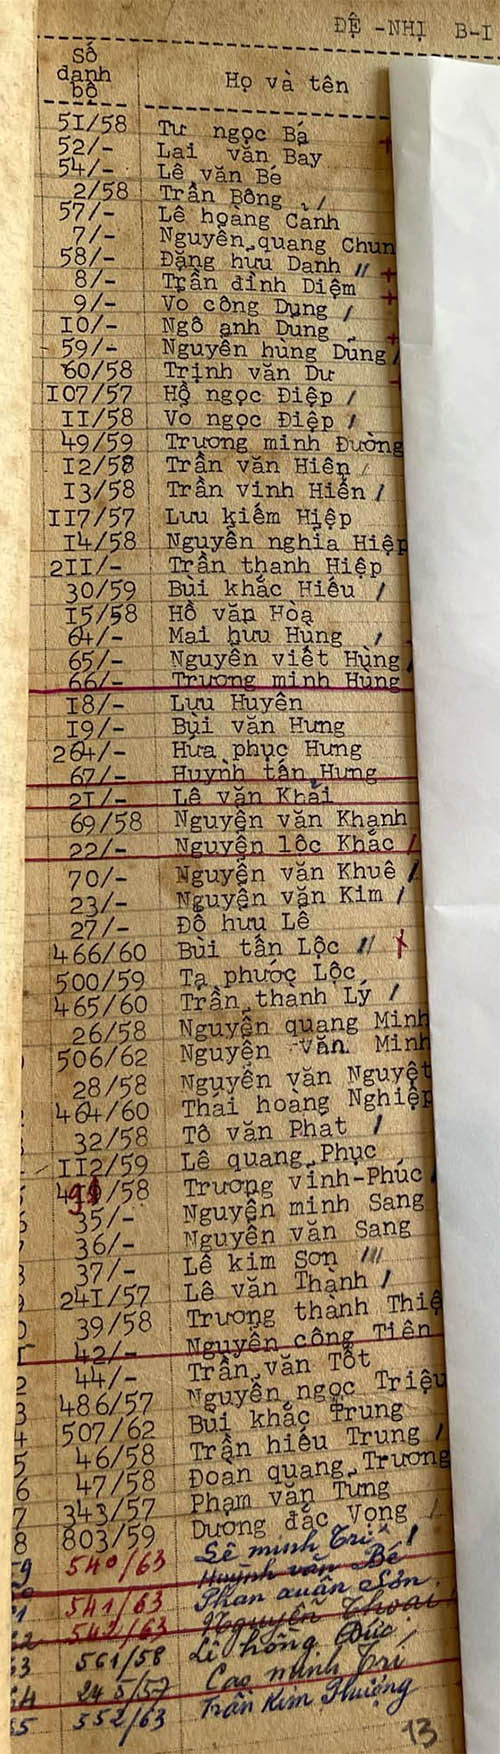 ĐỆ -NHỊ B-I
Số danh bộ Họ và tên
51/58 Tư ngọc Bá
52/- Lai văn Bay
54/- Lê văn Bé
2/58 Trần Bông
57/- Lê hoàng Canh
7/- Nguyễn quang Chun
58/- Đặng hưu Danh
8/- Trần đình Diệm
9/- Vo công Dung
I0/- Ngô anh Dung
59/- Nguyễn hùng Dung
60/58 Trịnh văn Dư
I07/57 Hồ ngọc Điệp
II/58 Vo ngọc Điệp
49/59 Trương minh Đường
I2/58 Trần văn Hiên
I3/58 Trần vinh Hiển
II7/57 Lưu kiếm Hiệp
I4/58 Nguyễn nghia Hiệp
2II/- Trần thanh Hiệp
30/59 Bùi khắc Hiếu
I5/58 Hồ văn Hòa
64/- Mai hưu Hung
65/- Nguyễn viết Hùng
66/- Trương minh Hùng
I8/- Lưu Huyên
I9/- Bùi văn Hưng
264/- Hứa phục Hưng
67/- Huynh tấn Hưng
2I/- Lê văn Khải
69/58 Nguyễn văn Khanh
22/- Nguyễn lộc Khắc
70/- Nguyễn văn Khuê
23/- Nguyễn văn Kim
27/- Đỗ hưu Lê
466/60 Bùi tấn Lộc
500/59 Tạ phước Lộc
465/60 Trần thành Lý
26/58 Nguyễn quang Minh
506/62 Nguyễn văn Minh
28/58 Nguyễn văn Nguyệt
464/60 Thái hoàng Nghiệp
32/58 Tô văn Phat
II2/59 Lê quang Phục
/58 Trương vinh-Phúc
35/- Nguyễn minh Sang
36/- Nguyễn văn Sang
37/- Lê kim Sơn
24I/57 Lê văn Thành
39/58 Trương thành Thiệ
42/- Nguyễn công Tiên
44/- Trần văn Tốt
3 486/57 Nguyễn ngọc Triệu
4 507/62 Bùi khắc Trung
5 46/58 Trần hiếu Trung
6 47/58 Đoàn quang Trương
7 343/57 Phạm văn Tung
8 803/59 Dương đắc Vọng
59 540/63 Lê minh Trí
Huỳnh văn Bé
61 541/63 Phan xuân Sơn
62 542/63 Nguyễn Thoai
63 561/58 Lê hồng Đức
64 245/57 Cao minh Trí
65 552/63 Trần Kim Phượng
13